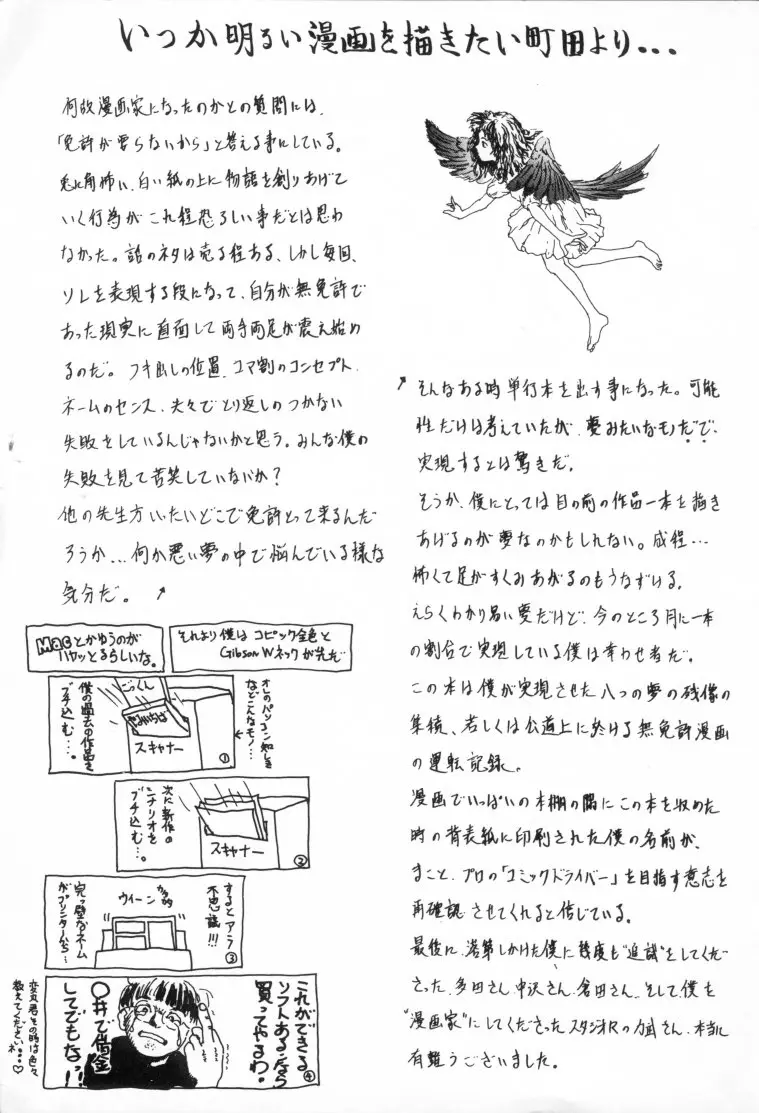 いつか明るい漫画を描きたい町田より...
何故漫画家になったのかとの質問には、
「免許が要らないから」と答える事にしている。
兎に角怖い、白い紙の上に物語を創りあげて
いく行為がこれ程恐ろしい事だとは思わ
なかった。話のネタは売る程ある、しかし毎回、
ソレを表現する段になって、自分が無免許で
あった現実に直面して両手両足が震え始め
るのだ。フキ出しの位置、コマ割のコンセプト、
ネームのセンス、夫々でとり返しのつかない
失敗をしているんじゃないかと思う。みんな僕の
失敗を見て苦笑していないか?
他の先生方いったいどこで免許とって来るんだ
ろうか...何か悪い夢の中で悩んでいる様な
気分だ。↗
↗そんなある時単行本を出す事になった。可能
性だけは考えていたが、夢みたいなモノだで、
実現するとは驚きだ。
そうか、僕にとっては目の前の作品一本を描き
あげるのが夢なのかもしれない。成程...
怖くて足がすくみあがるのもうなずける。
えらくわかり易い夢だけど、今のところ月に一本
の割合で実現している僕は幸わせ者だ。
この本は僕が実現させた八つの夢の残像の
集積、若しくは公道上に於ける無免許漫画
の運転記録。
漫画でいっぱいの本棚の隅にこの本を収めた
時の背表紙に印刷された僕の名前が、
まこと、プロの「コミックドライバー」を目指す意志を
再確認させてくれると信じている。
最後に、落第しかけた僕に幾度も"追試"をしてくだ
さった、多田さん、中沢さん、倉田さん、そして僕を
"漫画家"にしてくださったスタジオRの力武さん、本当に
有難うございました。
Macとかゆうのが
ハヤッとるらしいな。
それより僕はコピック全色と
Gibson Wネックが先だ
オレのパソコン知しき
などこんなモノ...
ごっくん
スキャナー
僕の過去の作品を
ブチ込む...。
①
次に新作の
シナリオを
ブチ込む...。
スキャナー
②
するとアラ
不思議!!!
ウィーン
完ッ璧なネーム
がプリンターから...
③
これができる
ソフトあるなら
買ってやるわ。
〇井で借金
してでもなっ!!
④
その時は色々
教えてくださいネ...♡